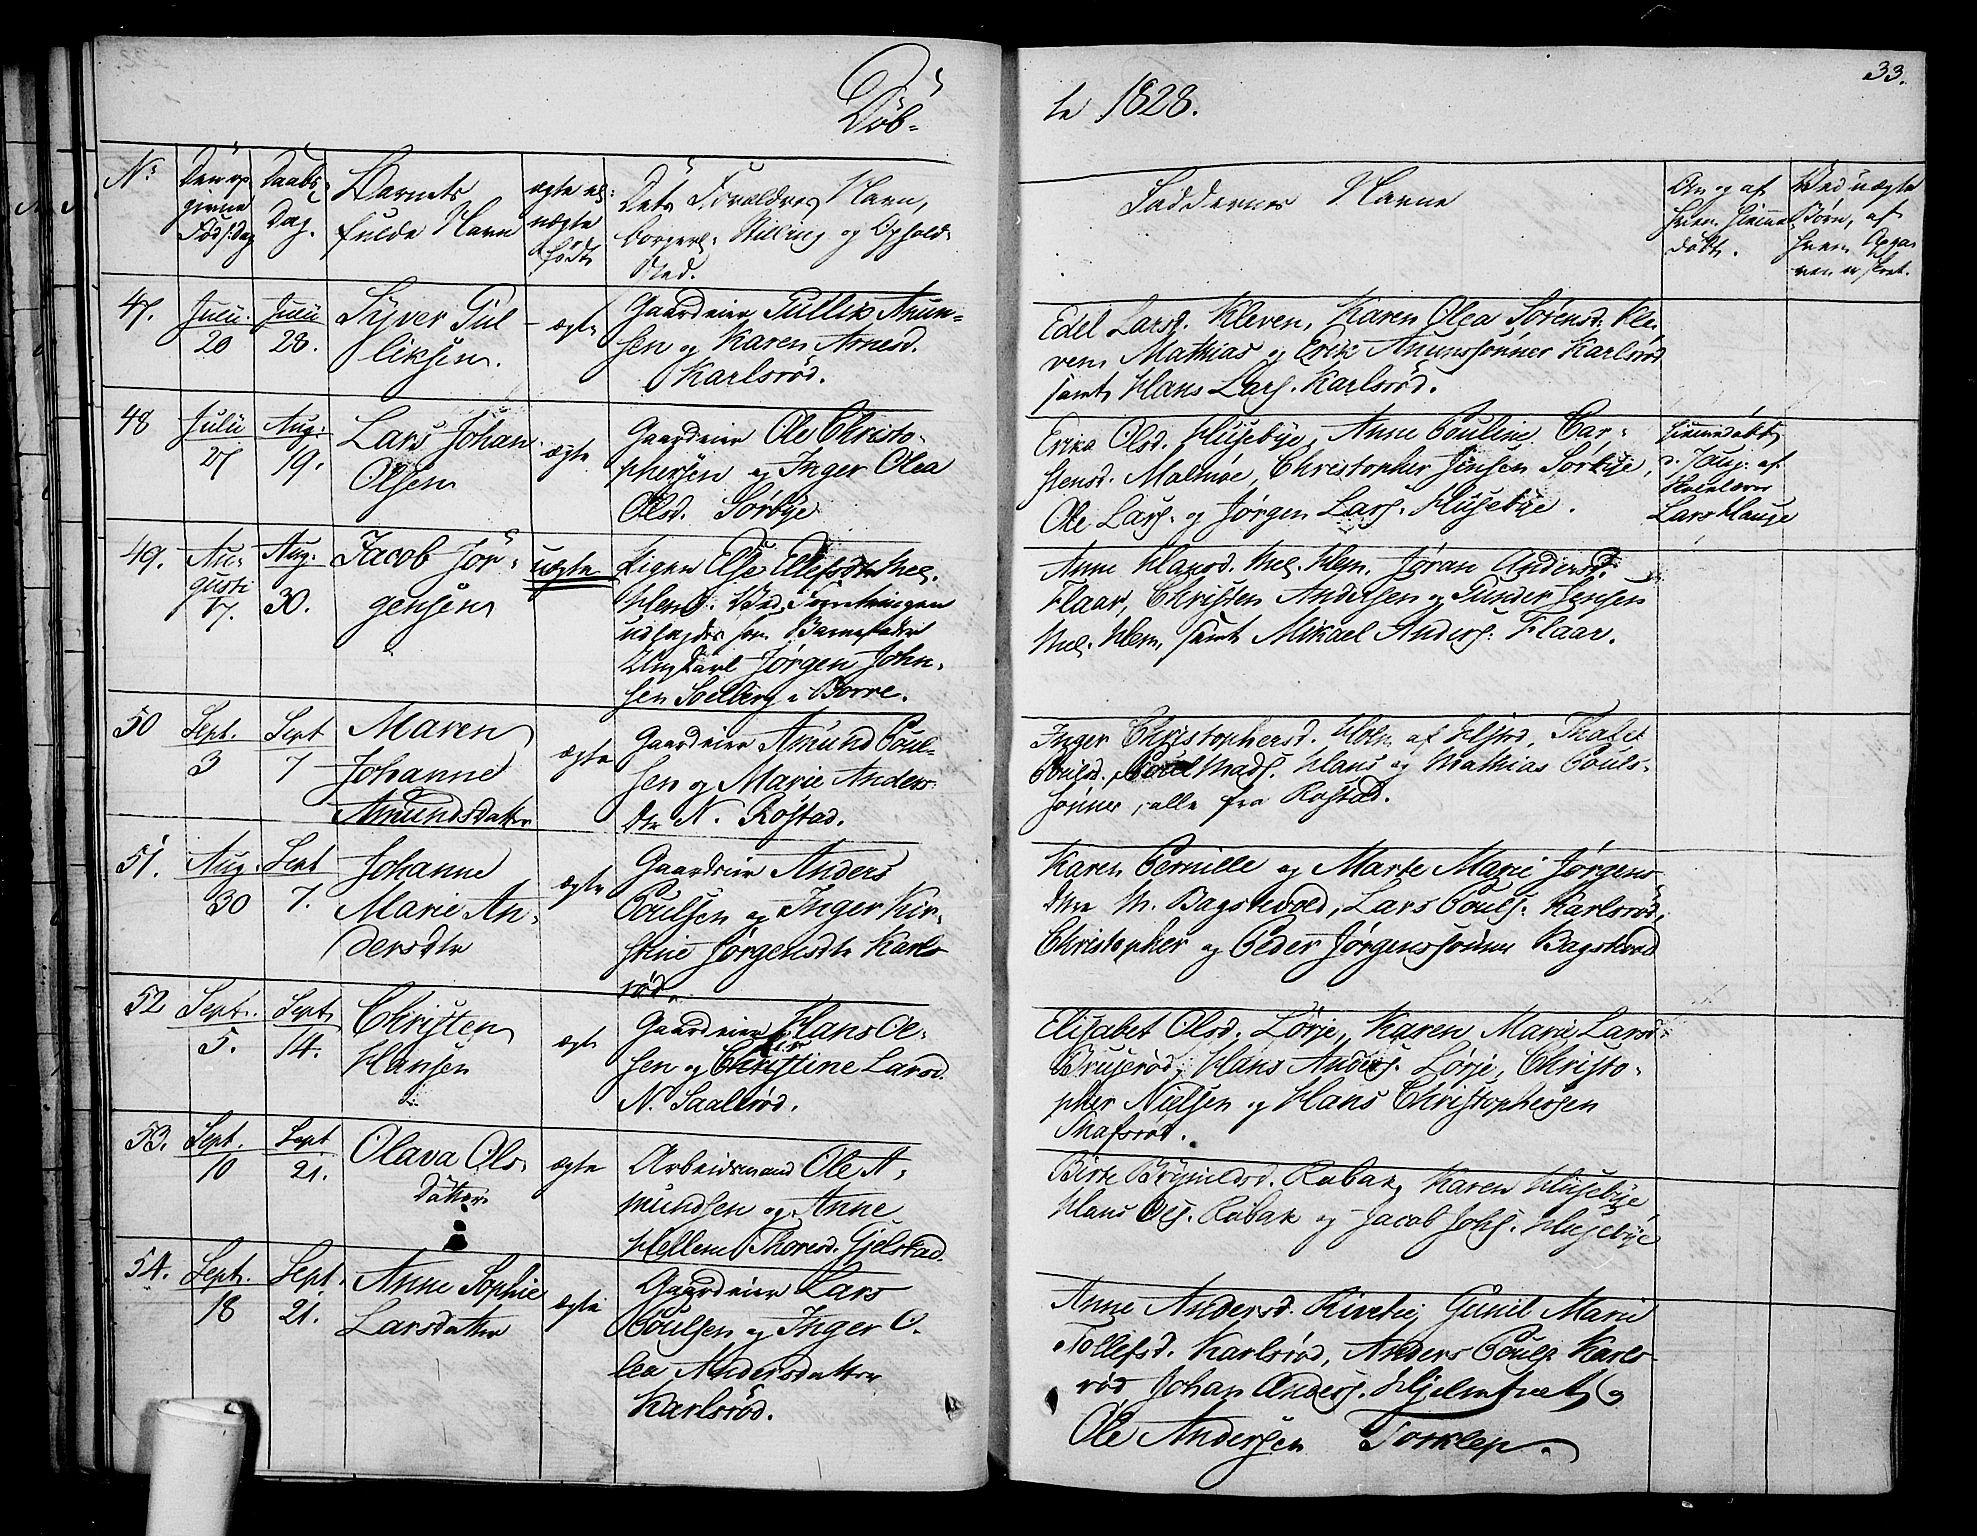 Döb-
te 1828.
33.
No
Den op
givne
Føds: Dag
Daabs
Dag.
Barnets
fulde Navn
ægte el:
uægte
født
Dets Forældres Navn,
borgerl: Stilling og Opholds
Sted.
Faddernes Navne
Om og af
hvem hjemme
døbt.
Ved uægte
Børn, af
hvem Opga
ven er skeet.
47.
Julii
20
Julii
28.
Syver Gul
liksen.
ægte
Gaardeier Gullik Anun-
sen og Karen Arnesd.
Karlsröd.
Edel Larsd. Kleven, Karen Olea Sørensd. Kle-
ven, Mathias og Erik Anunssønner Karlsröd
samt Hans Lars. Karlsröd.
48
Julii
27
Aug:
19.
Lars Johan
Olsen
ægte
Gaardeier Ole Christo-
phersen og Inger Olea
Olsd. Sørbye
Erika Olsd. Husebye, Anne Pouline Car-
stensd. Malmøe, Christopher Jensen Sørbye,
Ole Lars. og Jørgen Lars. Husebye.
hjemmedøbt
af
Skolelærer
Lars Hauge
49.
Au-
gusti
17.
Aug:
30.
Jacob Jör-
gensen
uægte
Pigen Else Ellefsdtr Mel.
Hem. Ved Forretningen
udlagdes som Barnefader
Ungkarl Jørgen John-
sen Solberg i Borre.
Anne Hansd. Mel. Hem, Jøran Andersd.
Flaar, Christen Andersen og Gunder Jensen
Mel. Hem, samt Mikael Anders. Flaar.
50
Sept.
3
Sept
7
Maren
Johanne
Amundsdatter
ægte
Gaardeier Amund Poul-
sen og Marie Anders
Dtr N. Röstad.
Inger Christophersd. Holm af Thabet
Poulsd. Mads. Hans og Mathias Pouls-
sønner, alle fra Rostad.
51.
Aug.
30
Sept
7.
Johanne
Marie An-
dersdtr
ægte
Gaardeier Anders
Poulsen og Inger Kir-
stine Jørgensdtr Karls
röd.
Karen Pernille og Marte Marie Jørgens-
dtre M. Bagskevold, Lars Pouls. Karlsröd,
Christopher og Peder Jørgenssønner Bagskevold
52
Sept.
5.
Sept.
14.
Christen
Hansen
ægte
Gaardeier Hans Ol-
sen og Christine Larsd.
N. Saalleröd.
Elisabet Olsd. Lørje, Karen Marie Larsd.
Bruseröd, Hans Anders. Lørje, Christo-
pher Nielsen og Hans Christophersen
53.
Sept.
10
Sept
21.
Olava Ols-
datter
ægte
Arbeidsmand Ole A-
mundsen og Anne
Hellene Thoresd. Gjelstad.
Birte Brynildsd. Rabak, Karen Husebye,
Hans Ols. Rabak og Jacob Johs. Husebye
54.
Sept.
18
Sept.
21.
Anne Sophie
Larsdatter
ægte
Gaardeier Lars
Poulsen og Inger O-
lea Andersdatter
Karlsröd.
Anne Andersd. Gunil Marie
Tollefsd. Karlsröd, Anders Pouls Karls-
röd Johan Anders. Hjelmtvet og
Ole Andersen Torklep.